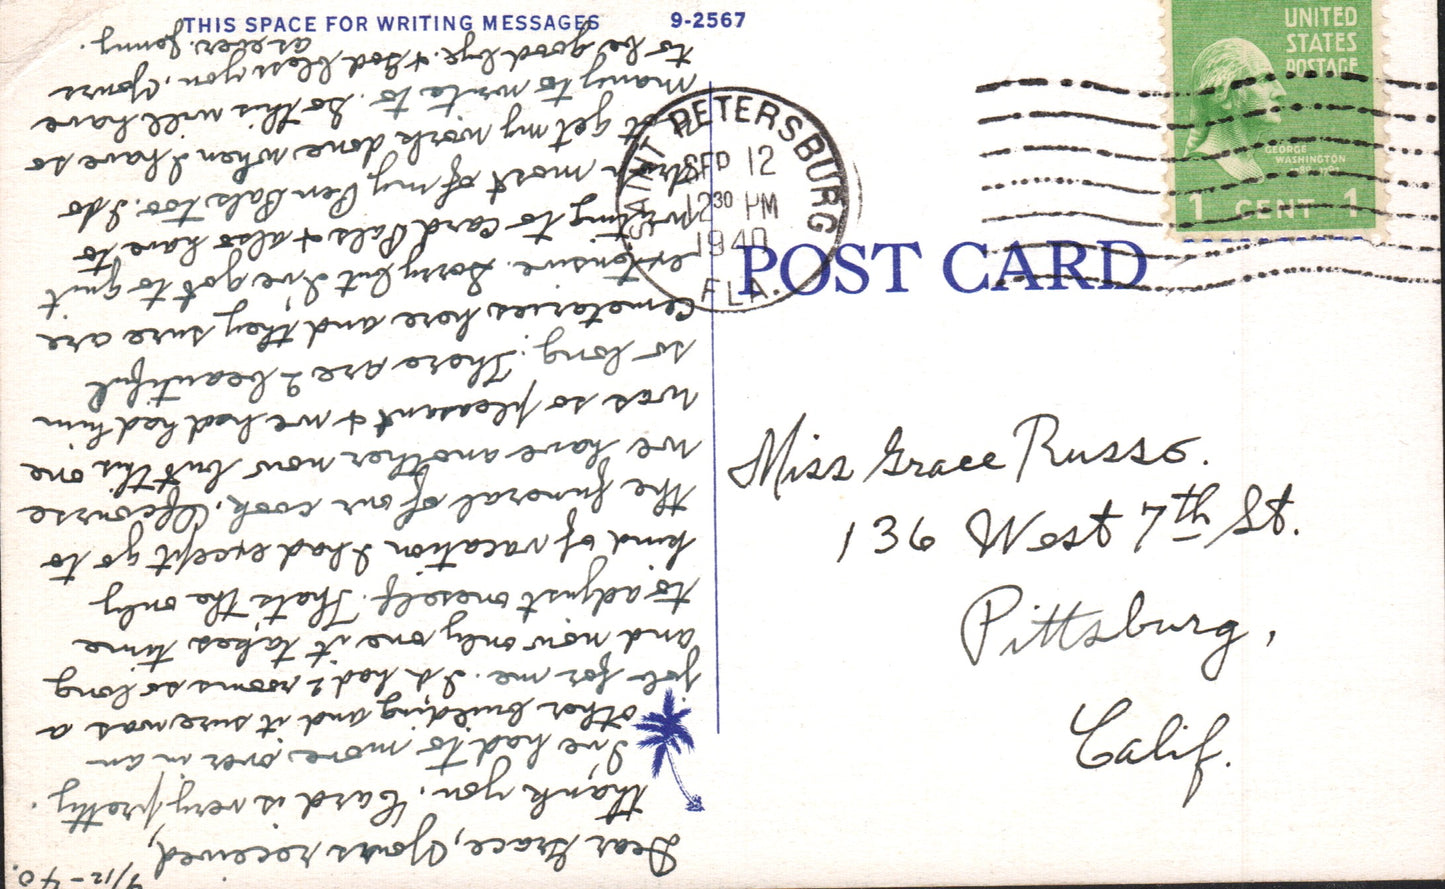 THIS SPACE FOR WRITING MESSAGES 9-2567
9/12-40.
Dear Grace, Yours received,
thank you. Card is very pretty.
I've had to move over in an
other building and it sure was a
job for me. I'd had 2 rooms so long
and now only one it takes time
to adjust oneself. That's the only
kind of vacation I had except go to
the funeral of our cook. Of course
we have another now but this one
was so pleasant & we had had him
so long. There are 2 beautiful
Cemeteries here and they sure are
extensive. Sorry but I've got to quit
writing to Card Pals & also have to
drop most of my Pen Pals too. I do
not get my work done when I have so
many to write to. So this will have
to be good bye. & God bless you. Yours
as ever. Jenny.
SAINT PETERSBURG
SEP 12
12 30 PM
1940
FLA.
UNITED
STATES
POSTAGE
GEORGE
WASHINGTON
1 CENT 1
POST CARD
Miss Grace Russo.
136 West 7th St.
Pittsburg,
Calif.